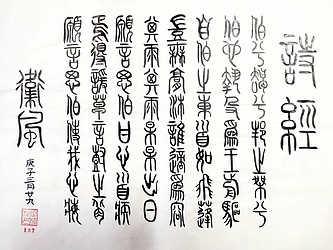 詩經
伯兮朅兮邦之桀兮
伯也執殳爲王前驅
自伯之東首如飛蓬
豈無膏沐誰適爲容
其雨其雨杲杲出日
願言思伯甘心首疾
焉得諼草言樹之背
願言思伯使我心痗
衛風
庚子三月廿九